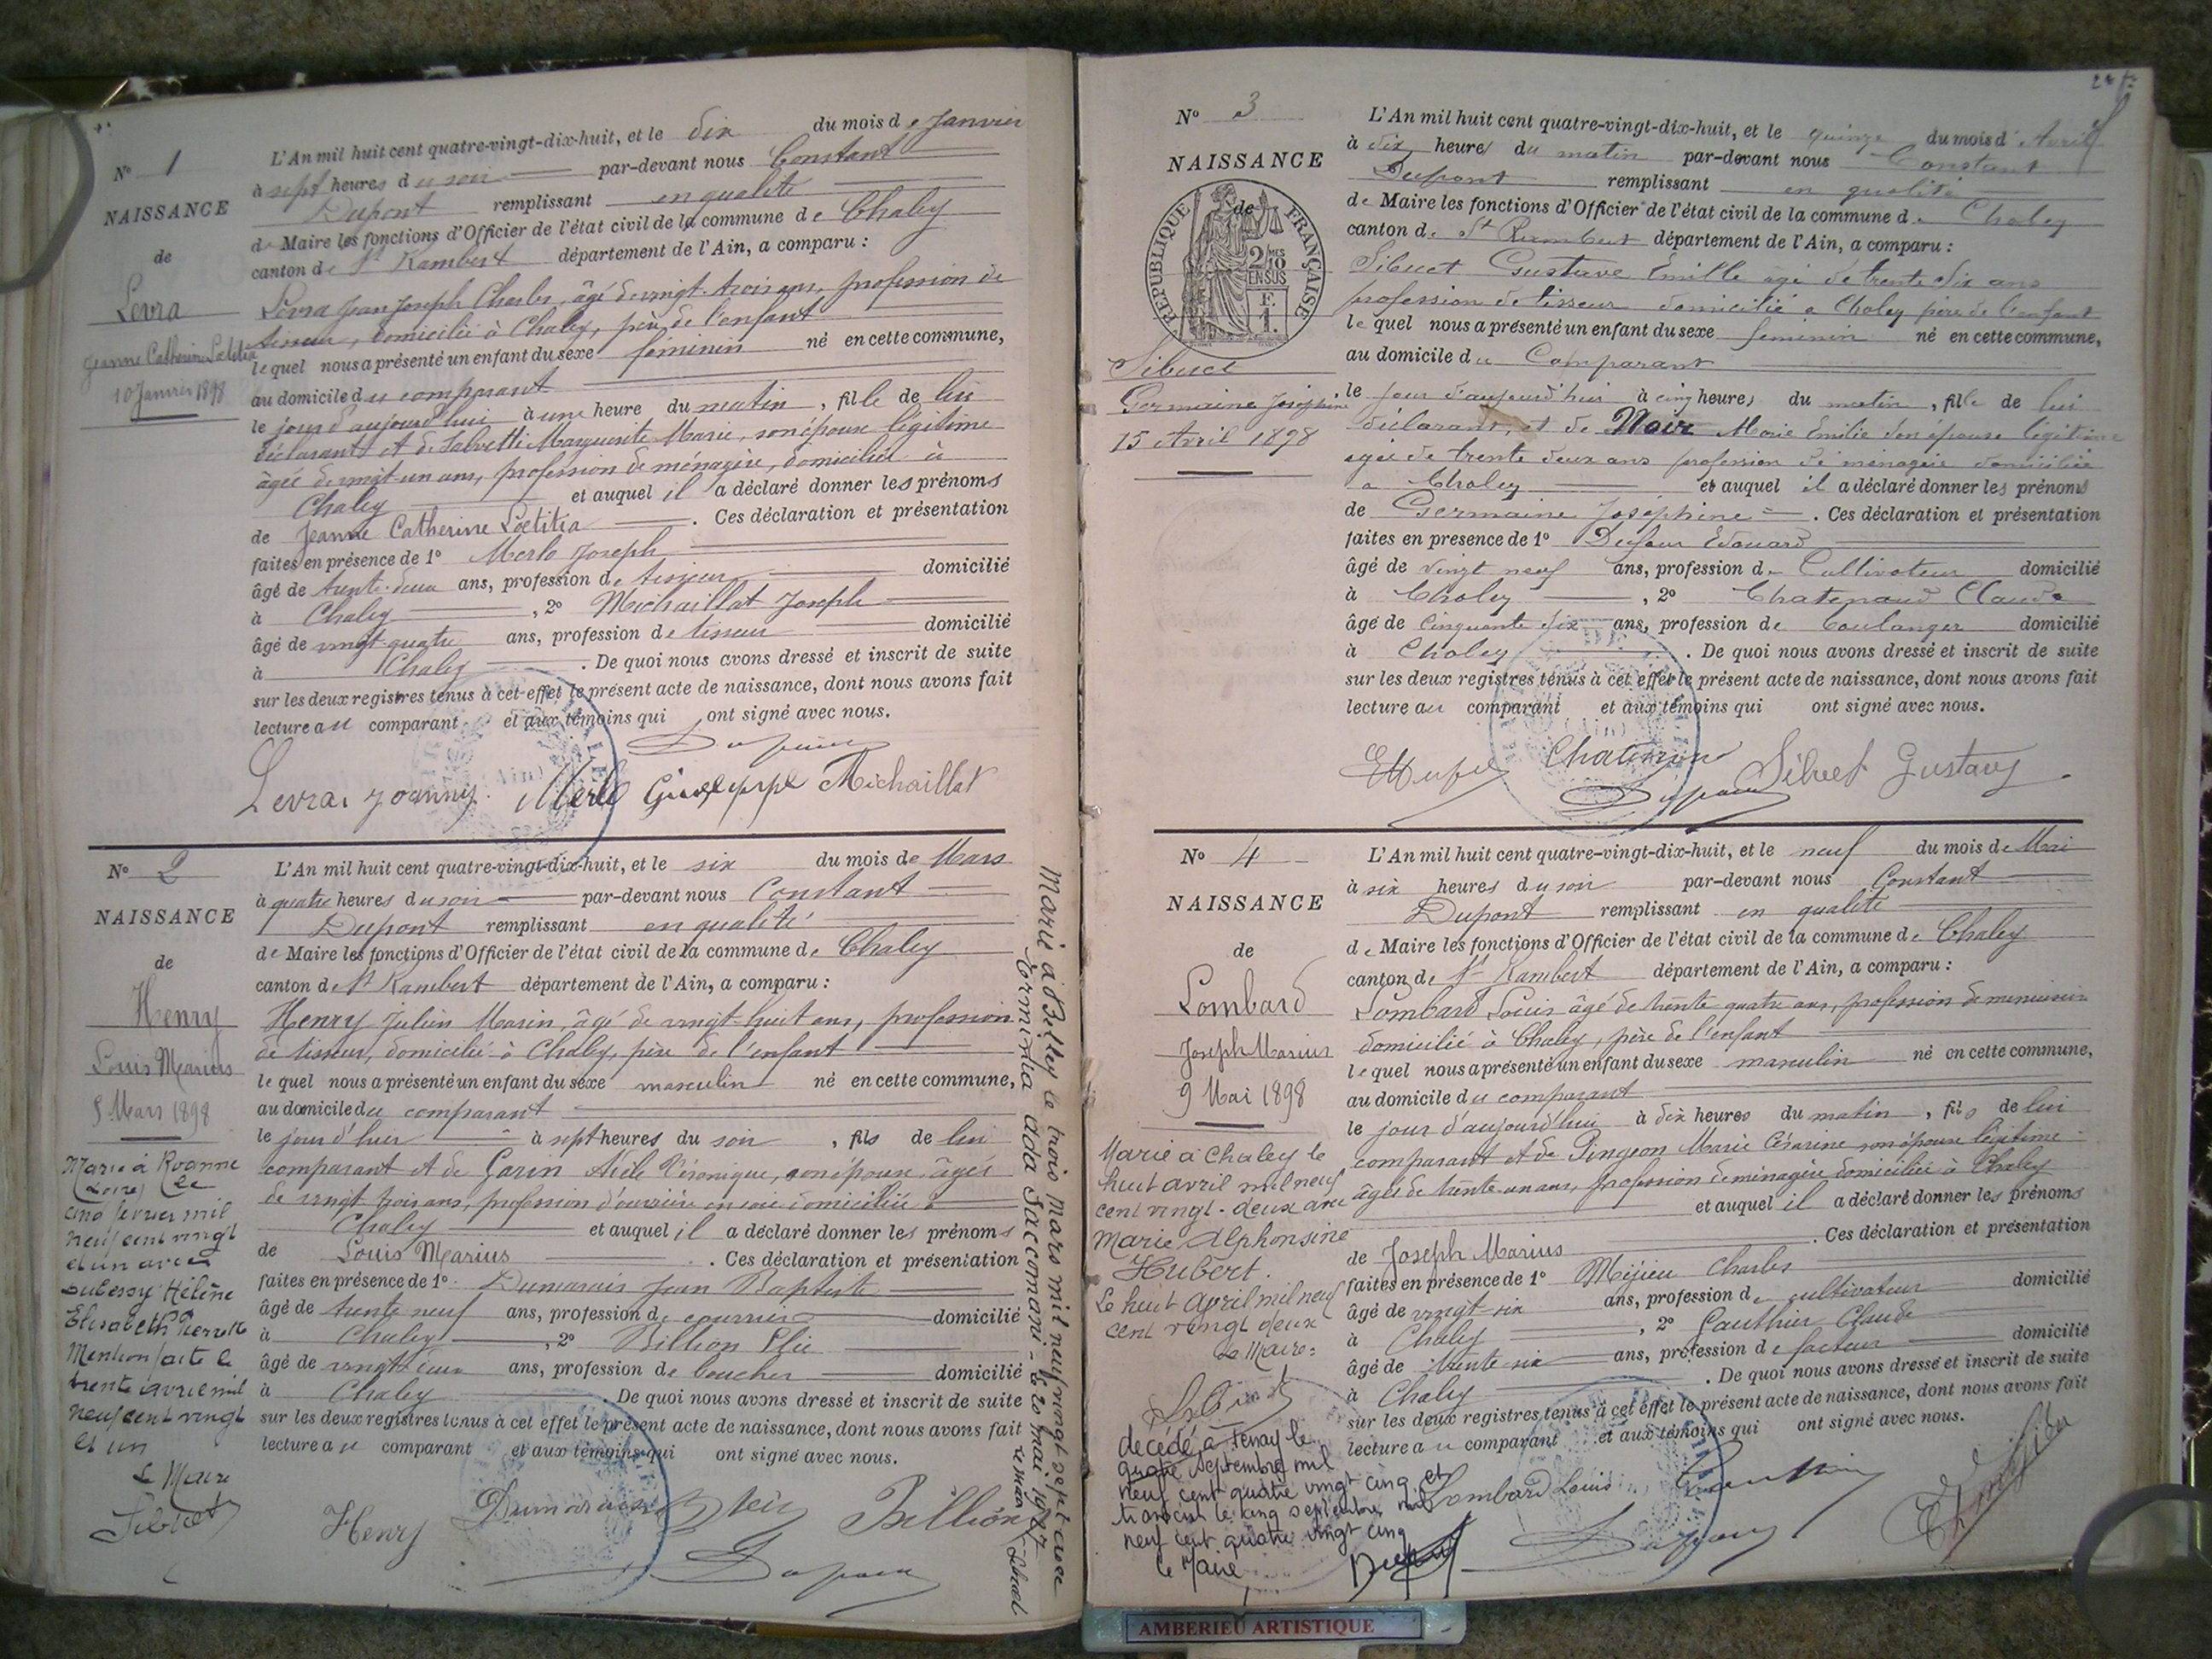 Nº 1
NAISSANCE
de
Levra
Jeanne Catherine Lœtitia
10 Janvier 1898
L'An mil huit cent quatre-vingt-dix-huit, et le dix du mois de Janvier
à sept heures du soir par-devant nous Constant
Dupont remplissant en qualité
de Maire les fonctions d'Officier de l'état civil de la commune de Chaley
canton de St Rambert département de l'Ain, a comparu :
Levra Jean Joseph Charles, âgé de vingt-trois ans, profession de
tisseur, domicilié à Chaley, père de l'enfant
lequel nous a présenté un enfant du sexe féminin né en cette commune,
au domicile du comparant
le jour d'aujourd'hui à une heure du matin, fille de lui
déclarant et de Salvetti Marguerite Marie, son épouse légitime
âgée de vingt-un ans, profession de ménagère, domiciliée à
Chaley et auquel il a déclaré donner les prénoms
de Jeanne Catherine Lœtitia . Ces déclaration et présentation
faites en présence de 1º Merlo Joseph
âgé de trente-deux ans, profession de tisseur domicilié
à Chaley , 2º Michaillat Joseph
âgé de vingt-quatre ans, profession de tisseur domicilié
à Chaley . De quoi nous avons dressé et inscrit de suite
sur les deux registres tenus à cet effet le présent acte de naissance, dont nous avons fait
lecture au comparant et aux témoins qui ont signé avec nous.
Dupont
Levra Joanny Merlo Giuseppe Michaillat
Nº 2
NAISSANCE
de
Henry
Louis Marius
5 Mars 1898
Marié à Roanne
(Loire) le
cinq février mil
neuf cent vingt
et un avec
Dubessy Hélène
Elisabeth Pierrette
Mention faite le
trente avril mil
neuf cent vingt
et un
Le Maire
Sibuet
L'An mil huit cent quatre-vingt-dix-huit, et le six du mois de Mars
à quatre heures du soir par-devant nous Constant
Dupont remplissant en qualité
de Maire les fonctions d'Officier de l'état civil de la commune de Chaley
canton de St Rambert département de l'Ain, a comparu :
Henry Julien Marin, âgé de vingt-huit ans, profession
de tisseur, domicilié à Chaley, père de l'enfant
lequel nous a présenté un enfant du sexe masculin né en cette commune,
au domicile du comparant
le jour d'hier à sept heures du soir , fils de lui
comparant et de Garin Adèle Véronique, son épouse, âgée
de vingt trois ans, profession d'ouvrière en soie domiciliée à
Chaley et auquel il a déclaré donner les prénoms
de Louis Marius . Ces déclaration et présentation
faites en présence de 1º Dumarais Jean Baptiste
âgé de trente neuf ans, profession de domicilié
à Chaley , 2º Billion Elie
âgé de vingt-deux ans, profession de boucher domicilié
à Chaley . De quoi nous avons dressé et inscrit de suite
sur les deux registres tenus à cet effet le présent acte de naissance, dont nous avons fait
lecture au comparant et aux témoins qui ont signé avec nous.
Henry Dumarais Billion
Dupont
Marié à Belley le trois Mars mil neuf vingt sept avec
Erminia dada Saccomani - le 20 mai 1927
Le maire Sibuet
Nº 3
NAISSANCE
de
REPUBLIQUE FRANÇAISE
2/10 MES EN SUS
F. 1.
Sibuet
Germaine Joséphine
15 Avril 1898
L'An mil huit cent quatre-vingt-dix-huit, et le quinze du mois d'Avril
à dix heures du matin par-devant nous Constant
Dupont remplissant en qualité
de Maire les fonctions d'Officier de l'état civil de la commune de Chaley
canton de St Rambert département de l'Ain, a comparu :
Sibuet Gustave Emille âgé de trente six ans
profession de tisseur domicilié à Chaley père de l'enfant
lequel nous a présenté un enfant du sexe féminin né en cette commune,
au domicile du Comparant
le jour d'aujourd'hui à cinq heures du matin , fille de lui
déclarant, et de Noir Marie Emilie son épouse légitime
agée de trente deux ans profession de ménagère domiciliée
a Chaley et auquel il a déclaré donner les prénoms
de Germaine Joséphine . Ces déclaration et présentation
faites en presence de 1º Dufour Edouard
âgé de vingt neuf ans, profession de Cultivateur domicilié
à Chaley , 2º Chatenaud Claude
âgé de Cinquante six ans, profession de boulanger domicilié
à Chaley . De quoi nous avons dressé et inscrit de suite
sur les deux registres tenus à cet effet le présent acte de naissance, dont nous avons fait
lecture au comparant et aux témoins qui ont signé avec nous.
Sibuet Gustave
Dupont
Nº 4
NAISSANCE
de
Lombard
Joseph Marius
9 Mai 1898
Marié à Chaley le
huit avril mil neuf
cent vingt-deux avec
Marie Alphonsine
Hubert.
Le huit Avril mil neuf
cent vingt deux
Le Maire:
decédé à Tenay le
quatre Septembre mil
neuf cent quatre vingt cinq et
transcrit le cinq septembre mil
neuf cent quatre vingt cinq
le Maire
L'An mil huit cent quatre-vingt-dix-huit, et le neuf du mois de Mai
à six heures du soir par-devant nous Constant
Dupont remplissant en qualité
de Maire les fonctions d'Officier de l'état civil de la commune de Chaley
canton de St Rambert département de l'Ain, a comparu :
Lombard Louis âgé de trente quatre ans, profession de menuisier
domicilié à Chaley, père de l'enfant
lequel nous a présenté un enfant du sexe masculin né en cette commune,
au domicile du comparant
le jour d'aujourd'hui à dix heures du matin , fils de lui
comparant et de Pingeon Marie Césarine son épouse légitime
âgée de trente-un ans, profession de ménagère domiciliée à Chaley
et auquel il a déclaré donner les prénoms
de Joseph Marius . Ces déclaration et présentation
faites en présence de 1º Méjieu Charles
âgé de vingt six ans, profession de cultivateur domicilié
à Chaley , 2º Gauthier Claude
âgé de trente-six ans, profession de facteur domicilié
à Chaley . De quoi nous avons dressé et inscrit de suite
sur les deux registres tenus à cet effet le présent acte de naissance, dont nous avons fait
lecture au comparant et aux témoins qui ont signé avec nous.
Lombard Louis
Dupont
AMBERIEU ARTISTIQUE